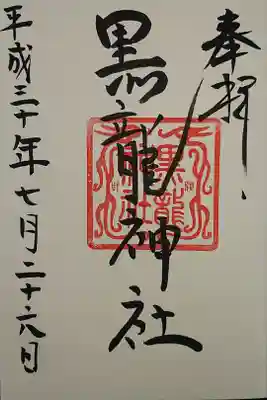 奉拝
黒龍神社
黒龍神社
平成三十年七月二十六日